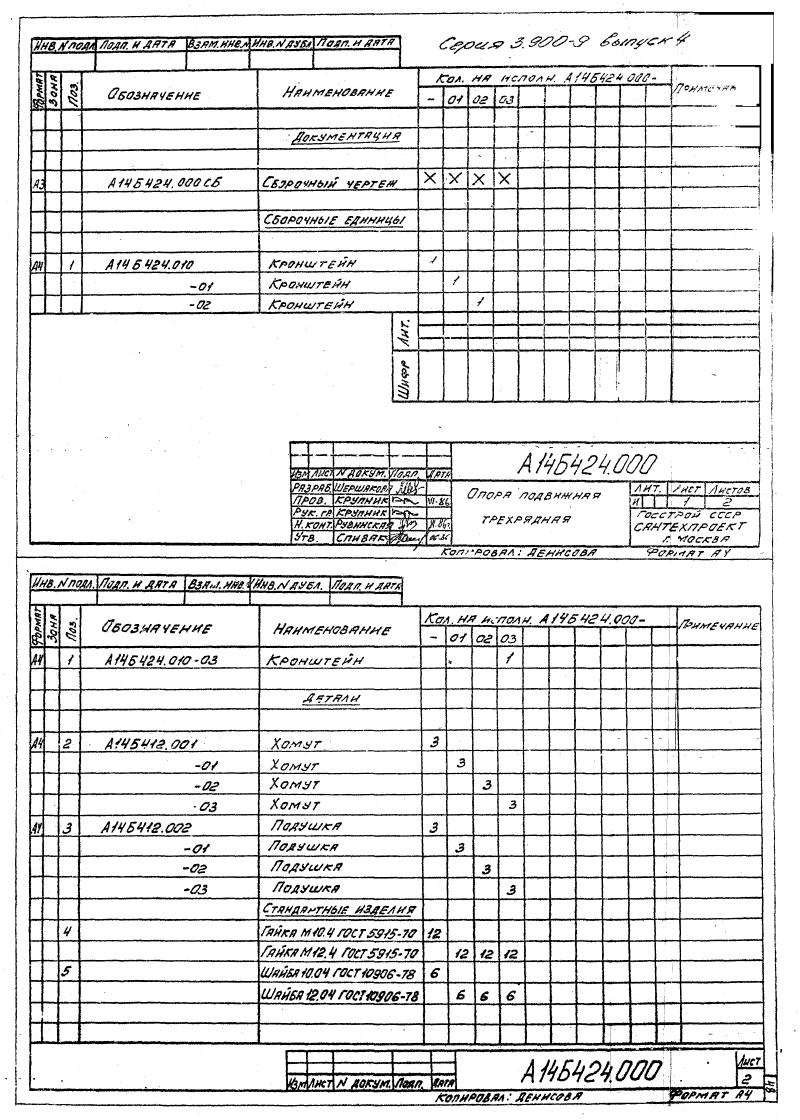 Серия 3.900-9 выпуск 4
Инв. N подл. Подп. и дата Взам. инв. N Инв. N дубл. Подп. и дата
Формат Зона Поз. Обозначение Наименование Кол. на исполн. А14Б424.000- Примечан
- 01 02 03
Документация
А3 А14Б424.000 СБ Сборочный чертеж X X X X
Сборочные единицы
А4 1 А14Б424.010 Кронштейн 1
-01 Кронштейн 1
-02 Кронштейн 1
Лит.
Шифр
А14Б424.000
Изм Лист N докум. Подп. Дата
Разраб. Шершакова
Пров. Крупник VII-86
Рук. гр. Крупник
Н. конт. Рувинская
Утв. Спивак
Опора подвижная
трехрядная
Лит. Лист Листов
И 1 2
Госстрой СССР
Сантехпроект
г. Москва
Копировал: Денисова Формат А4
Инв. N подл. Подп. и дата Взам. инв. N Инв. N дубл. Подп. и дата
Формат Зона Поз. Обозначение Наименование Кол. на исполн. А14Б424.000- Примечание
- 01 02 03
А4 1 А14Б424.010-03 Кронштейн 1
Детали
А4 2 А14Б412.001 Хомут 3
-01 Хомут 3
-02 Хомут 3
-03 Хомут 3
А4 3 А14Б412.002 Подушка 3
-01 Подушка 3
-02 Подушка 3
-03 Подушка 3
Стандартные изделия
4 Гайка М10.4 ГОСТ 5915-70 12
Гайка М12.4 ГОСТ 5915-70 12 12 12
5 Шайба 10.04 ГОСТ 10906-78 6
Шайба 12.04 ГОСТ 10906-78 6 6 6
А14Б424.000
Лист
2
Изм Лист N докум. Подп. Дата
Копировал: Денисова Формат А4
48